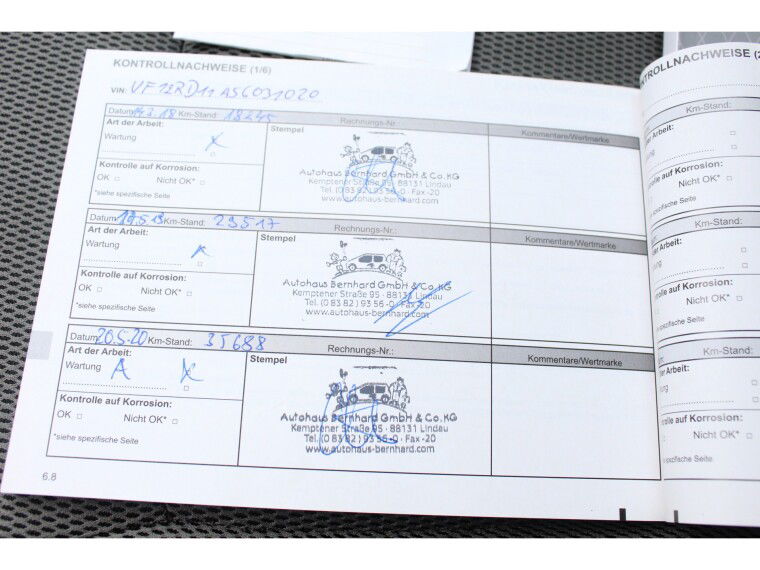 KONTROLLNACHWEISE (1/6)
VIN: VF1ERD11A56031020
Datum: Km-Stand: 18245 Rechnungs-Nr. Kommentare/Wertmarke
Art der Arbeit: Stempel
Wartung X
Kontrolle auf Korrosion:
OK □ Nicht OK* □
*siehe spezifische Seite
Autohaus Bernhard GmbH & Co.KG
Kemptener Straße 95 · 88131 Lindau
Tel. (0 83 82) 93 56-0 · Fax -20
www.autohaus-bernhard.com
Datum: Km-Stand: 29517 Rechnungs-Nr.: Kommentare/Wertmarke
Art der Arbeit: Stempel
Wartung X
Kontrolle auf Korrosion:
OK □ Nicht OK* □
*siehe spezifische Seite
Autohaus Bernhard GmbH & Co.KG
Kemptener Straße 95 · 88131 Lindau
Tel. (0 83 82) 93 56-0 · Fax -20
www.autohaus-bernhard.com
Datum: 20.5.20 Km-Stand: 35688 Rechnungs-Nr.: Kommentare/Wertmarke
Art der Arbeit: Stempel
Wartung A X
Kontrolle auf Korrosion:
OK □ Nicht OK* □
*siehe spezifische Seite
Autohaus Bernhard GmbH & Co.KG
Kemptener Straße 95 · 88131 Lindau
Tel. (0 83 82) 93 56-0 · Fax -20
www.autohaus-bernhard.com
6.8
TROLLNACHWEISE (2
Km-Stand:
er Arbeit:
ung
rolle auf Korrosion:
Nicht OK* □
he spezifische Seite
Km-Stand:
er Arbeit:
ung
rolle auf Korrosion:
Nicht OK* □
spezifische Seite
Km-Stand:
er Arbeit:
ung
rolle auf Korrosion:
Nicht OK* □
spezifische Seite